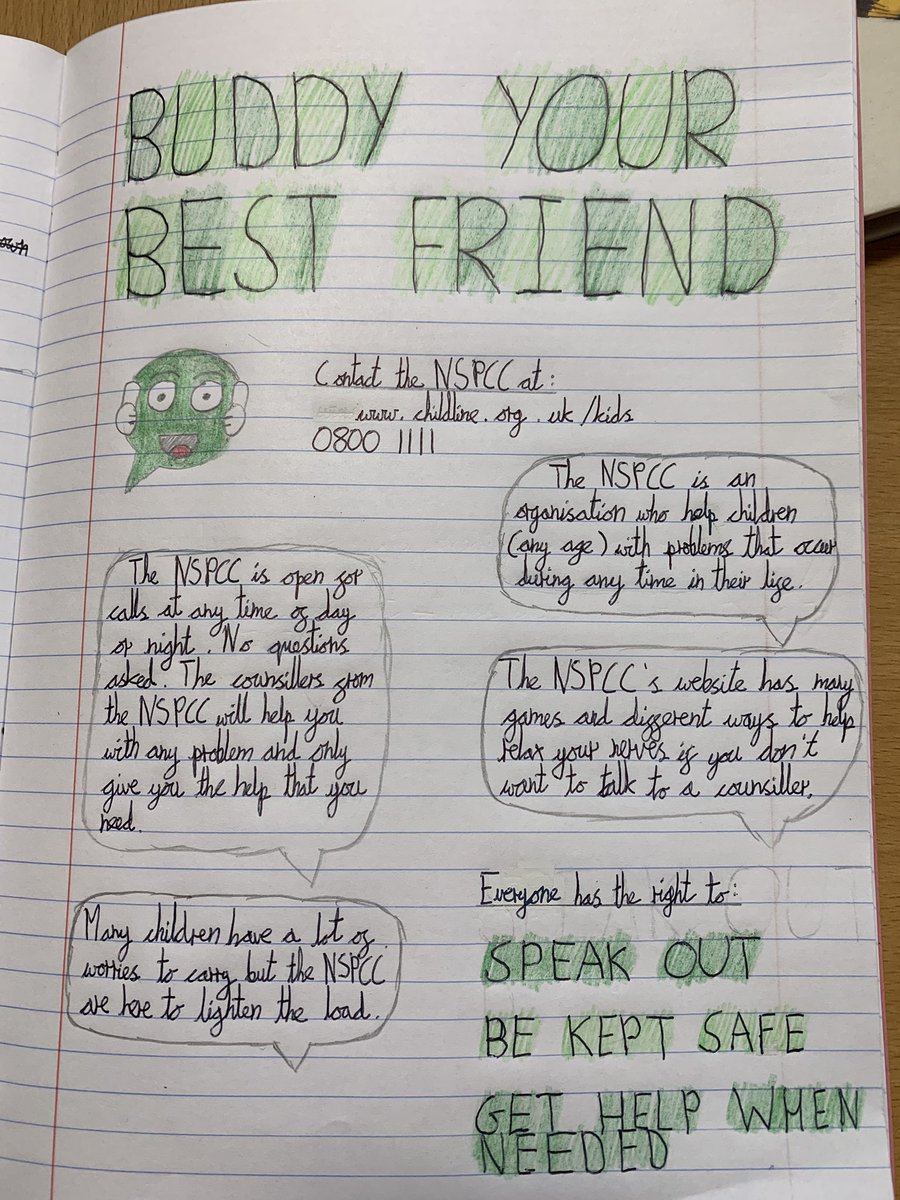 BUDDY YOUR
BEST FRIEND
Contact the NSPCC at:
www.childline.org.uk/kids
0800 1111
The NSPCC is an
organisation who help children
(any age) with problems that occur
during any time in their life.
The NSPCC is open for
calls at any time of day
or night. No questions
asked. The counsillers from
the NSPCC will help you
with any problem and only
give you the help that you
need.
The NSPCC's website has many
games and different ways to help
relax your nerves if you don't
want to talk to a counsiller.
Many children have a lot of
worries to carry but the NSPCC
are here to lighten the load.
Everyone has the right to:
SPEAK OUT
BE KEPT SAFE
GET HELP WHEN
NEEDED